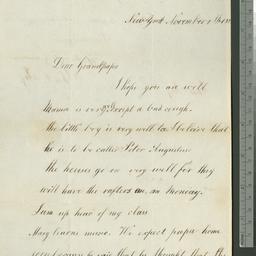 New York November
Dear Grandpapa
I hope you are well
Mama is very well except a bad cough.
the little boy is very well too I beleive that
he is to be called Peter Augustus
the houses go on very well for they
will have the rafters on on Monday.
I am up head of my class
Mary learns music. We expect papa home
soon he said that he thought that